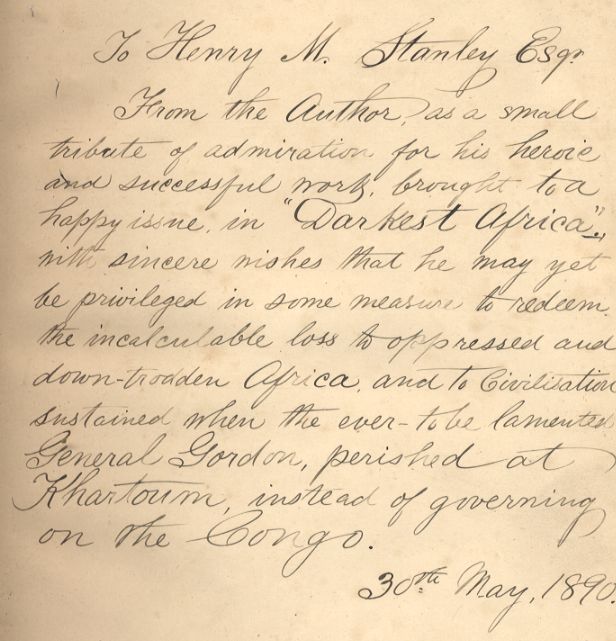 To Henry M. Stanley Esqr.
From the Author, as a small
tribute of admiration for his heroic
and successful work, brought to a
happy issue, in "Darkest Africa",
with sincere wishes that he may yet
be privileged in some measure to redeem
the incalculable loss to oppressed and
down-trodden Africa, and to Civilisation
sustained when the ever-to be lamented
General Gordon, perished at
Khartoum, instead of governing
on the Congo.
30th May, 1890.